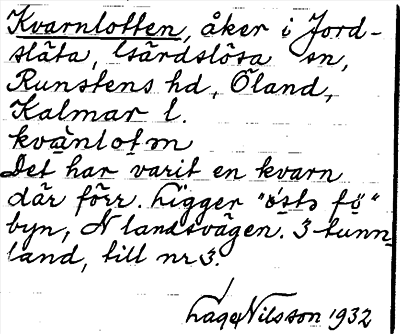 Kvarnlotten, åker i Jord-
släta, Gärdslösa sn,
Runstens hd, Öland,
Kalmar l.
kvànlotm
Det har varit en kvarn
där förr. Ligger "östə fö"
byn, N landsvägen. 3 tunn-
land, till nr 3.
Lage Nilsson 1932